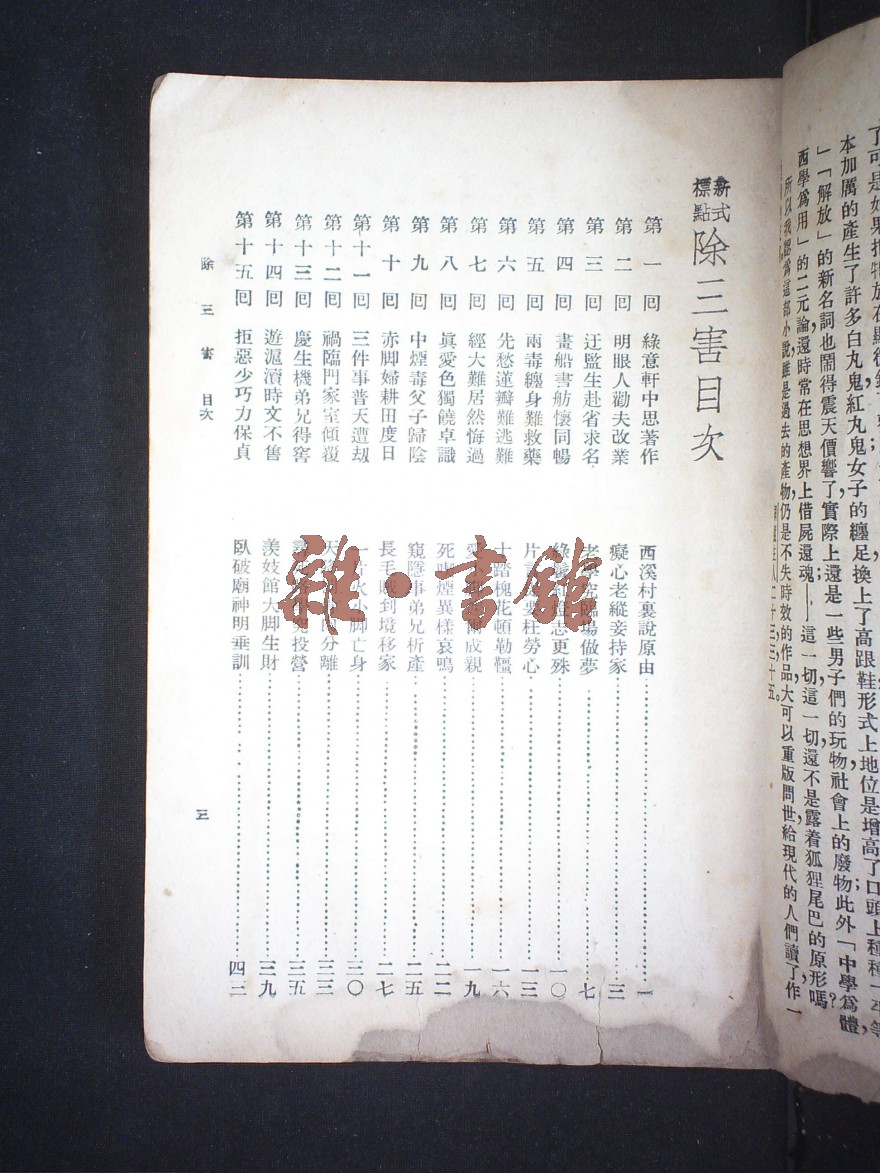 了可是如果
本加厲的產生了許多白丸鬼紅丸鬼女子的纏足換上了高跟鞋形式上地位是增高了口頭上種種
」「解放」的新名詞也鬧得震天價響了實際上還是一些男子們的玩物社會上的廢物此外「中學爲體，
西學爲用」的二元論還時常在思想界上借屍還魂——這一切這一切還不是露着狐狸尾巴的原形嗎？
所以我認爲這部小說雖是過去的產物仍是不失時效的作品大可以重版問世給現代的人們讀了作一
人二十三，三，十五。
新式標點 除三害目次
第一回 綠意軒中思著作 西溪村裏說原由 一
第二回 明眼人勸夫改業 癡心老縱妾持家 三
第三回 迂監生赴省求名 老學究臨場做夢 七
第四回 畫船書舫懷同暢 志更殊 一〇
第五回 兩毒纏身難救藥 片 枉勞心 一三
第六回 先愁蓮瓣難逃難 十踏槐 頓勒韁 一六
第七回 經大難居然悔過 愛 成親 一九
第八回 眞愛色獨饒卓識 死 煙異樣哀鳴 二二
第九回 中煙毒父子歸陰 窺隱事弟兄析產 二五
第十回 赤脚婦耕田度日 長毛賊到境移家 二七
第十一回 三件事普天遭刧 一 火小脚亡身 三〇
第十二回 禍臨門家室傾覆 天 分離 三三
第十三回 慶生機弟兄得窖 究投營 三五
第十四回 遊滬瀆時文不售 羨妓館大脚生財 三九
第十五回 拒惡少巧力保貞 臥破廟神明垂訓 四二
除三害 目次
三
雜·書館